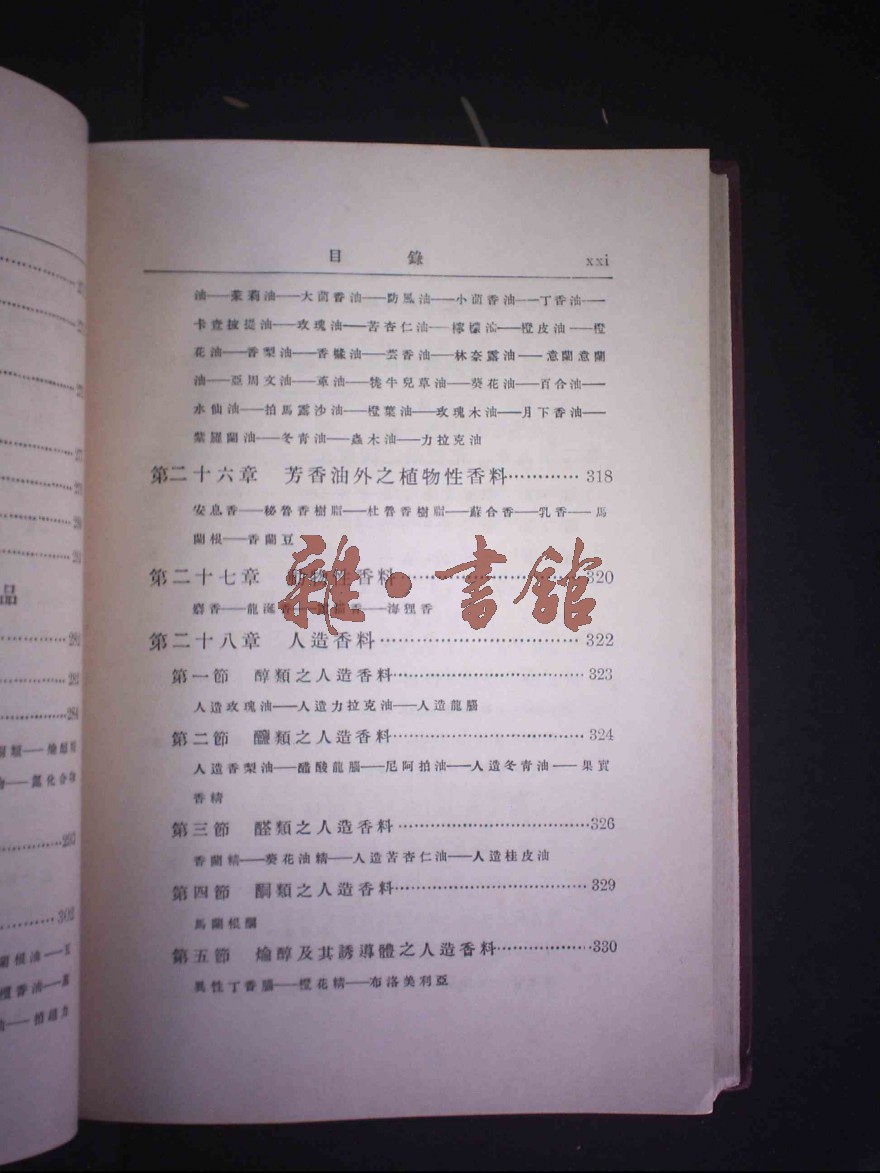 目 錄 xxi
油——茉莉油——大茴香油——防風油——小茴香油——丁香油——
卡查披提油——玫瑰油——苦杏仁油——檸檬油——橙皮油——橙
花油——香梨油——香櫞油——芸香油——林奈露油——意蘭意蘭
油——亞周文油——革油——牻牛兒草油——葵花油——百合油——
水仙油——拍馬露沙油——橙葉油——玫瑰木油——月下香油——
紫羅蘭油——冬青油——蟲木油——力拉克油
第二十六章 芳香油外之植物性香料············318
安息香——秘魯香樹脂——杜魯香樹脂——蘇合香——乳香——馬
蘭根——香蘭豆
第二十七章 動物性香料············320
麝香——龍涎香——靈猫香——海狸香
雜·書館
第二十八章 人造香料············322
第一節 醇類之人造香料············323
人造玫瑰油——人造力拉克油——人造龍腦
第二節 鹽類之人造香料············324
人造香梨油——醋酸龍腦——尼阿拍油——人造冬青油——果實
香精
第三節 醛類之人造香料············326
香蘭精——葵花油精——人造苦杏仁油——人造桂皮油
第四節 酮類之人造香料············329
馬蘭根酮
第五節 煰醇及其誘導體之人造香料············330
異性丁香腦——橙花精——布洛美利亞
品
281
302
蘭根油——
檀香油——